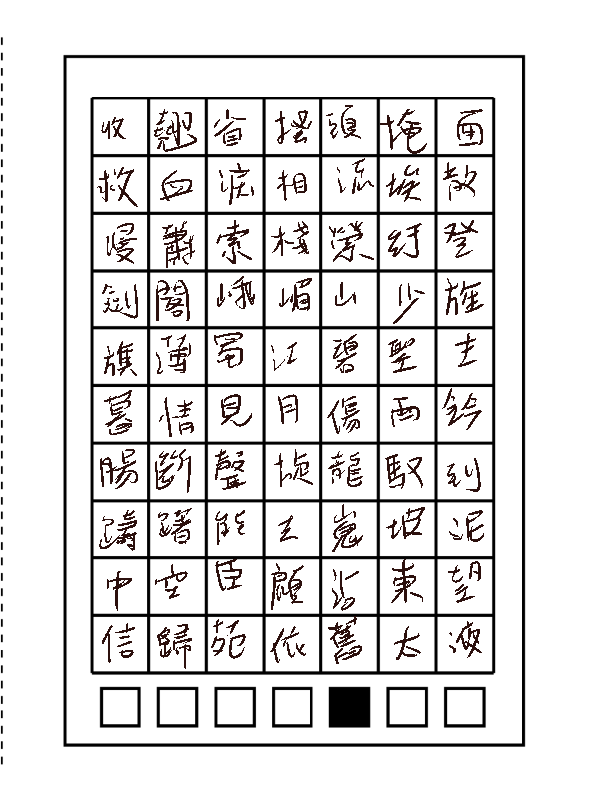 收翹省搔頭掩面
救血淚相流埃散
漫蕭索棧縈紆登
劍閣峨嵋山少旌
旗薄蜀江碧聖主
暮情見月傷雨鈴
腸斷聲旋龍馭到
躊躇能去嵬坡泥
中空臣顧沾東望
信歸苑依舊太液